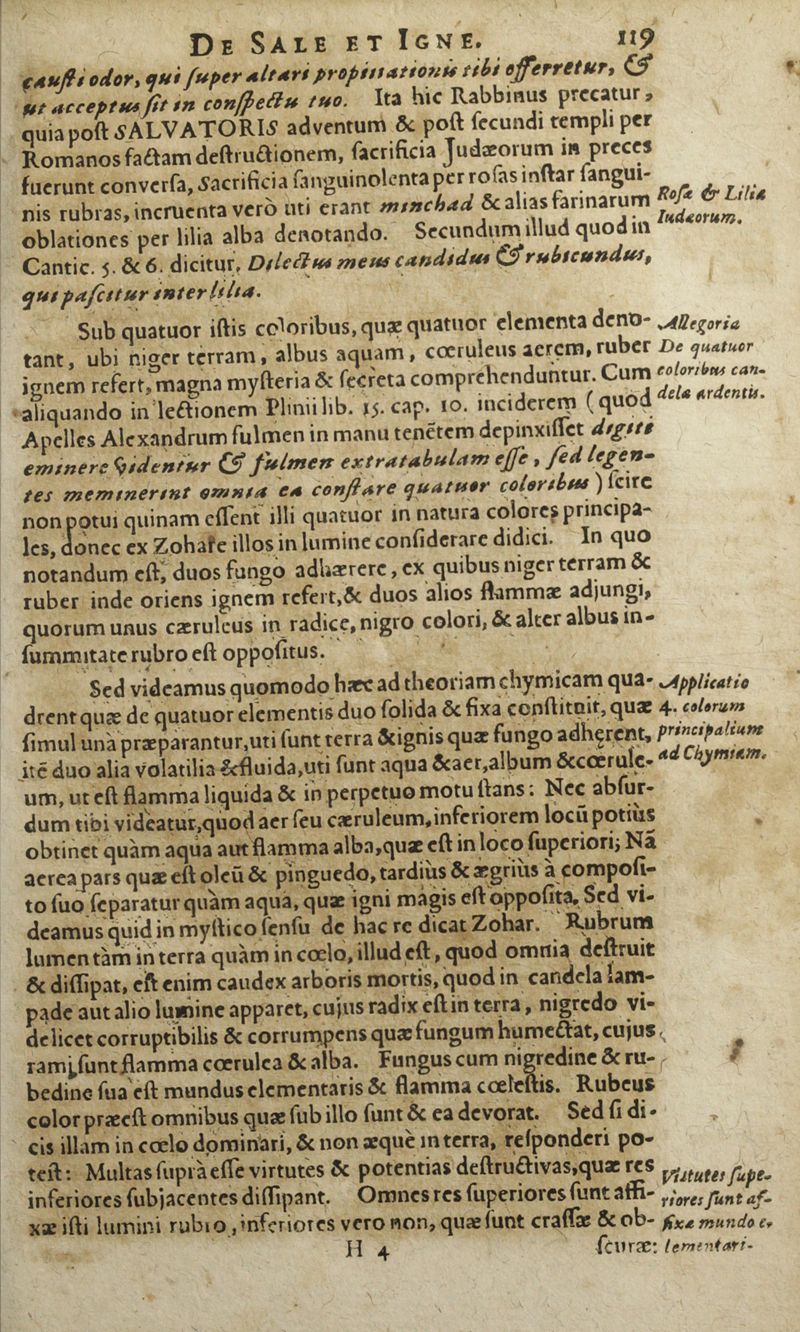 DE SALE ET IGNE. 119
caufti odor, qui fuper altari propitiationis tibi offerretur, &
ut acceptus fit in confpectu tuo. Ita hic Rabbinus precatur,
quia poft SALVATORIS adventum & poft fecundi templi per
Romanos factam deftructionem, facrificia Judæorum in preces
fuerunt converfa, Sacrificia fanguinolenta per rofas inftar fangui-
nis rubras, incruenta verò uti erant minchad & alias farinarum
Rofæ & Lilia
oblationes per lilia alba denotando. Secundum illud quod in
Iudæorum.
Cantic. 5. & 6. dicitur, Dilectus meus candidus & rubicundus,
qui pafcitur inter lilia.
Sub quatuor iftis coloribus, quæ quatuor elementa deno-
Allegoria
tant, ubi niger terram, albus aquam, cœruleus aerem, ruber
De quatuor
ignem refert, magna myfteria & fecreta comprehenduntur. Cum
coloribus can-
aliquando in lectionem Plinii lib. 35. cap. 10. inciderem (quod
dela ardentis.
Apelles Alexandrum fulmen in manu tenētem depinxiffet digiti
eminere videntur & fulmen extra tabulam effe, fed legen-
tes meminerint omnia ea conftare quatuor coloribus) fcire
non potui quinam effent illi quatuor in natura colores principa-
les, donec ex Zohare illos in lumine confiderare didici. In quo
notandum eft, duos fungo adhærere, ex quibus niger terram &
ruber inde oriens ignem refert, & duos alios flammæ adjungi,
quorum unus cæruleus in radice, nigro colori, & alter albus in-
fummitate rubro eft oppofitus.
Sed videamus quomodo hæc ad theoriam chymicam qua-
Applicatio
drent quæ de quatuor elementis duo folida & fixa conftituit, quæ
4. colorum
fimul unà præparantur, uti funt terra & ignis quæ fungo adhęrent,
principalium
itē duo alia volatilia & fluida, uti funt aqua & aer, album & cœrule-
ad Chymiam.
um, ut eft flamma liquida & in perpetuo motu ftans: Nec abfur-
dum tibi videatur, quod aer feu cæruleum, inferiorem locū potius
obtinet quàm aqua aut flamma alba, quæ eft in loco fuperiori; Nā
aerea pars quæ eft oleū & pinguedo, tardiùs & ægriùs à compofi-
to fuo feparatur quàm aqua, quæ igni magis eft oppofita. Sed vi-
deamus quid in myftico fenfu de hac re dicat Zohar. Rubrum
lumen tàm in terra quàm in cœlo, illud eft, quod omnia deftruit
& diffipat, eft enim caudex arboris mortis, quod in candela lam-
pade aut alio lumine apparet, cujus radix eft in terra, nigredo vi-
delicet corruptibilis & corrumpens quæ fungum humectat, cujus
rami funt flamma cœrulea & alba. Fungus cum nigredine & ru-
bedine fua eft mundus elementaris & flamma cœleftis. Rubeus
color præeft omnibus quæ fub illo funt & ea devorat. Sed fi di-
cis illam in cœlo dominari, & non æquè in terra, refponderi po-
teft: Multas fuprà effe virtutes & potentias deftructivas, quæ res
Virtutes fupe-
inferiores fubjacentes diffipant. Omnes res fuperiores funt affi-
riores funt af-
xæ ifti lumini rubio, inferiores vero non, quæ funt craffæ & ob-
fixæ mundo e-
H 4 fcuræ:
lementari-